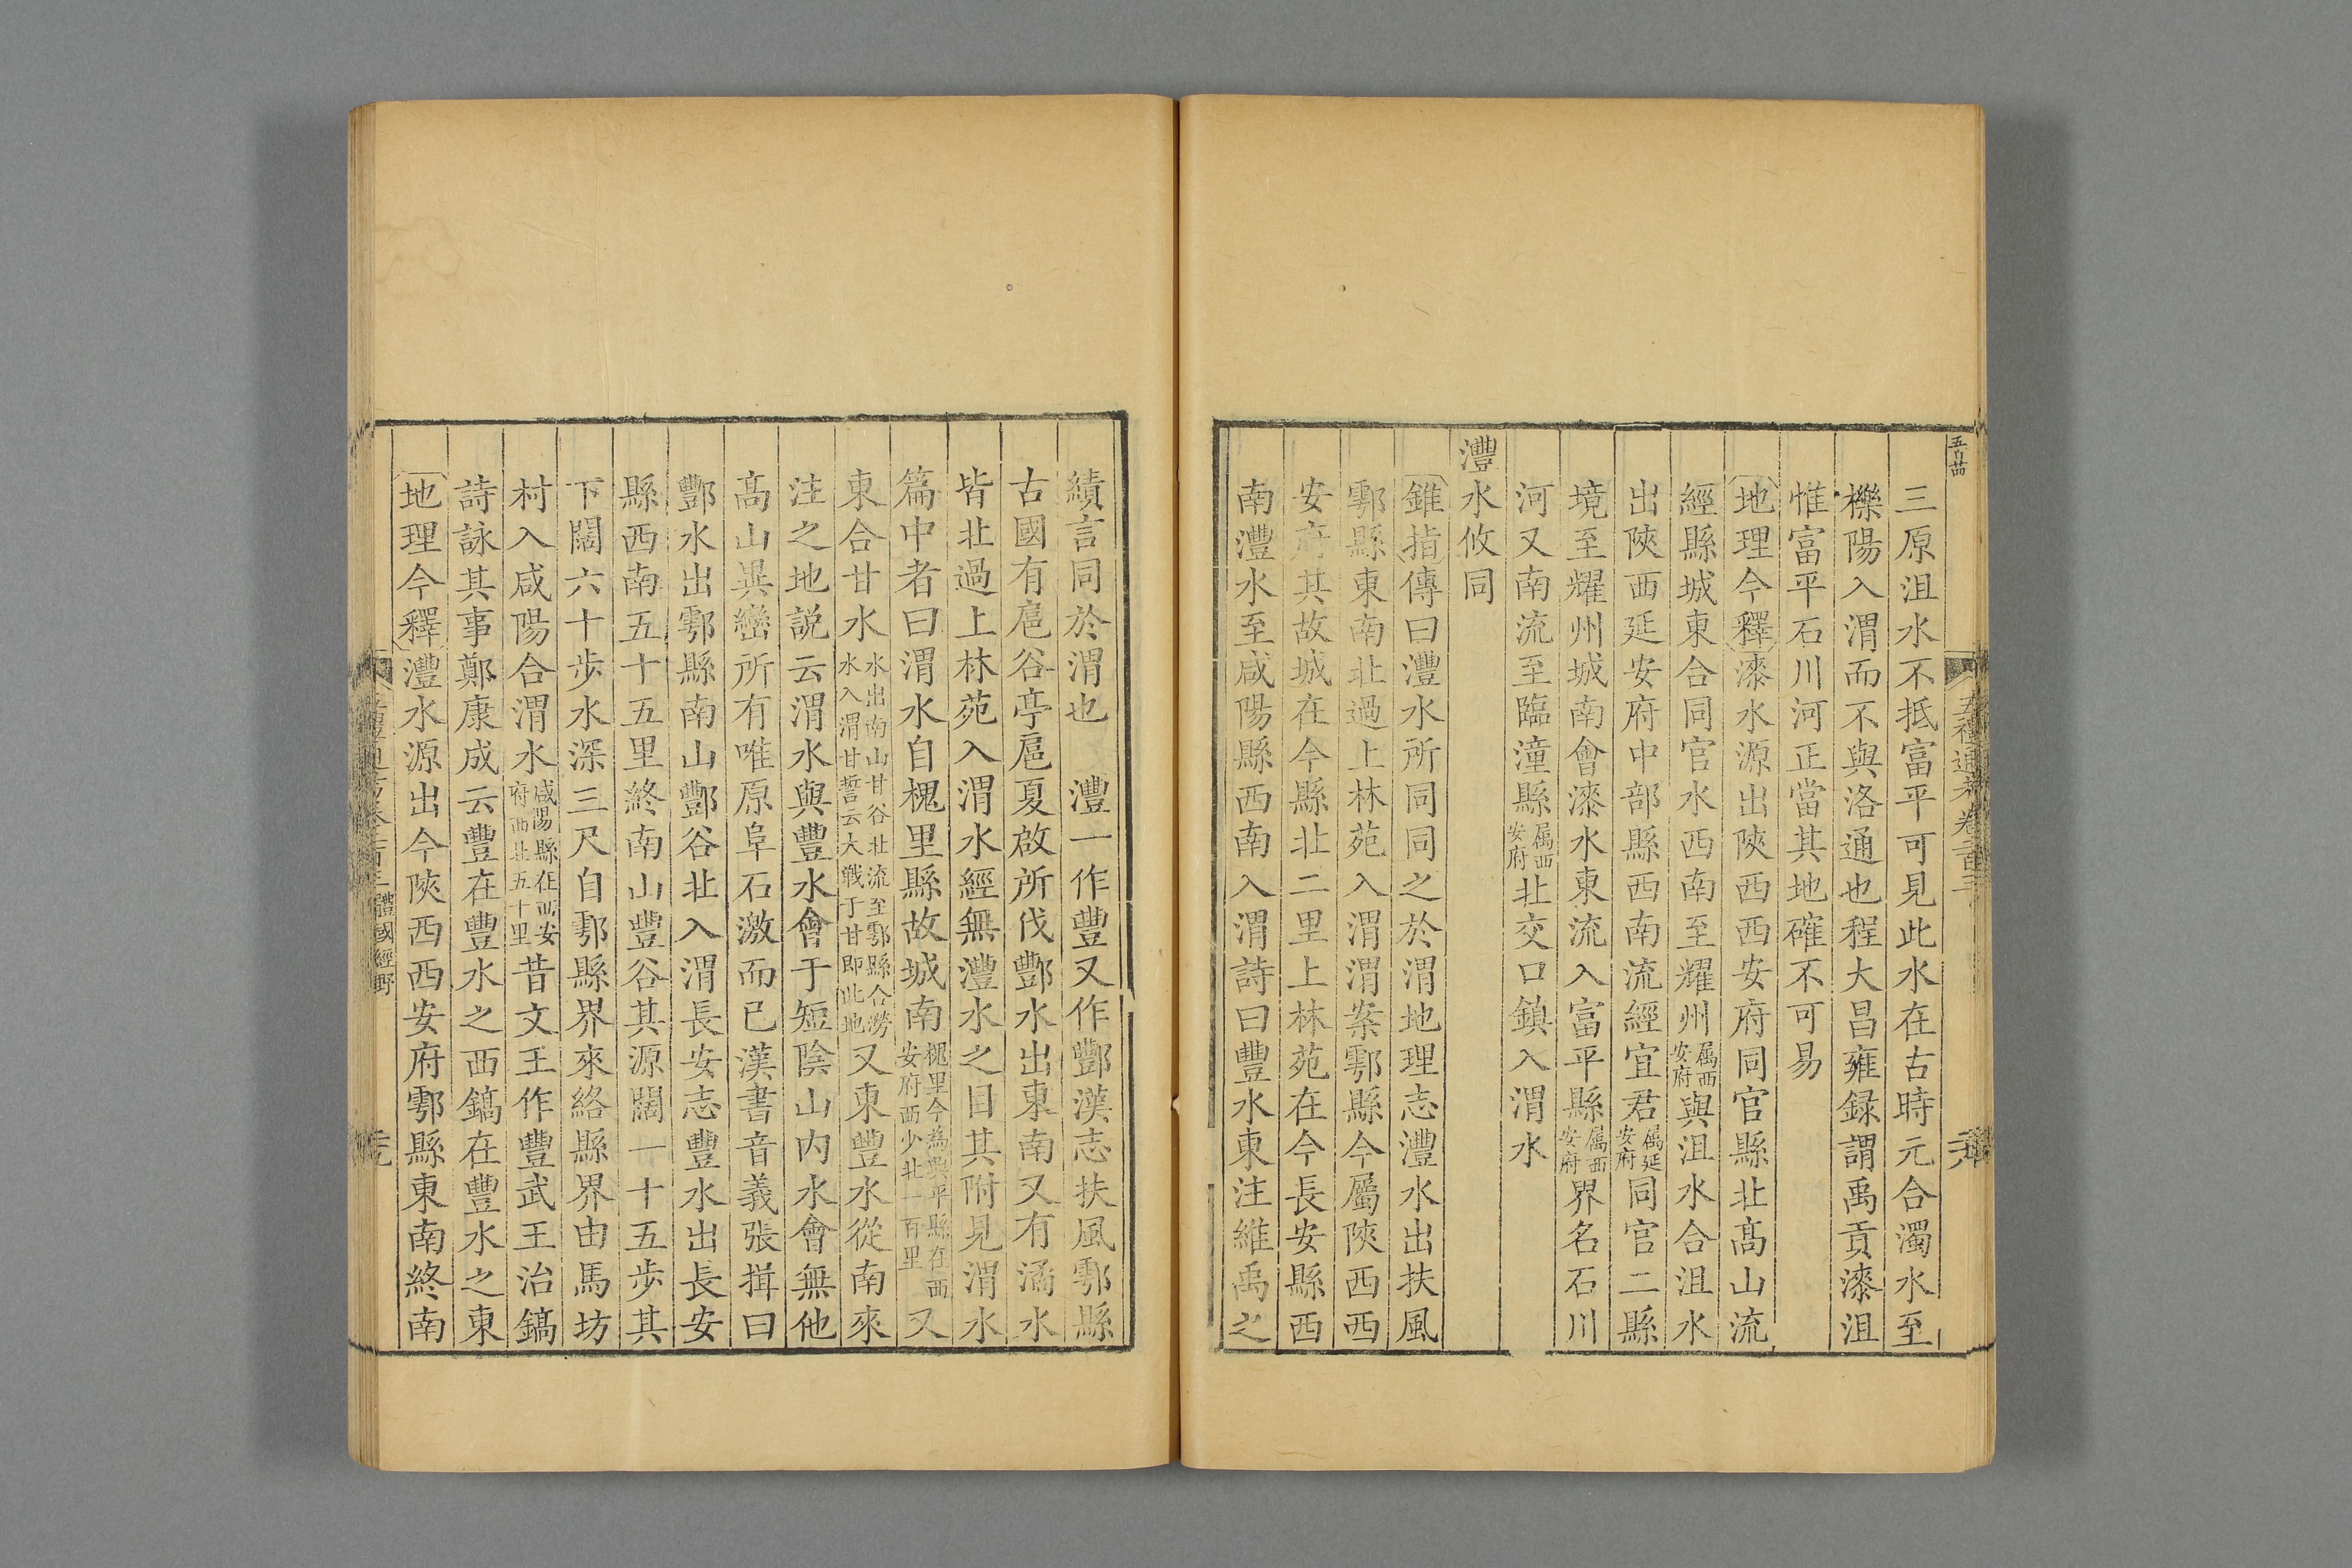 三原沮水不抵富平可見此水在古時元合濁水至
櫟陽入渭而不與洛通也程大昌雍録謂禹貢漆沮
惟富平石川河正當其地確不可易
地理今釋漆水源出陝西西安府同官縣北髙山流
經縣城東合同官水西南至耀州屬西安府與沮水合沮水
出陝西延安府中部縣西南流經宜君屬延安府同官二縣
境至耀州城南會漆水東流入富平縣屬西安府界名石川
河又南流至臨潼縣屬西安府北交口鎮入渭水
灃水攸同
錐指傳曰灃水所同同之於渭地理志灃水出扶風
鄠縣東南北過上林苑入渭渭案鄠縣今屬陝西西
安府其故城在今縣北二里上林苑在今長安縣西
南灃水至咸陽縣西南入渭詩曰豐水東注維禹之
績言同於渭也　灃一作豐又作酆漢志扶風鄠縣
古國有扈谷亭扈夏啟所伐酆水出東南又有潏水
皆北過上林苑入渭水經無灃水之目其附見渭水
篇中者曰渭水自槐里縣故城南槐里今為興平縣在西安府西少北一百里又
東合甘水水出南山甘谷北流至鄠縣合澇水入渭甘誓云大戰于甘即此地又東豐水從南來
注之地說云渭水與豐水會于短陰山内水會無他
髙山異巒所有唯原阜石激而已漢書音義張揖曰
酆水出鄠縣南山酆谷北入渭長安志豐水出長安
縣西南五十五里終南山豐谷其源闊一十五步其
下闊六十步水深三尺自鄠縣界來絡縣界由馬坊
村入咸陽合渭水咸陽縣在西安府西北五十里昔文王作豐武王治鎬
詩詠其事鄭康成云豐在豐水之西鎬在豐水之東
地理今釋灃水源出今陝西西安府鄠縣東南終南
體國經野